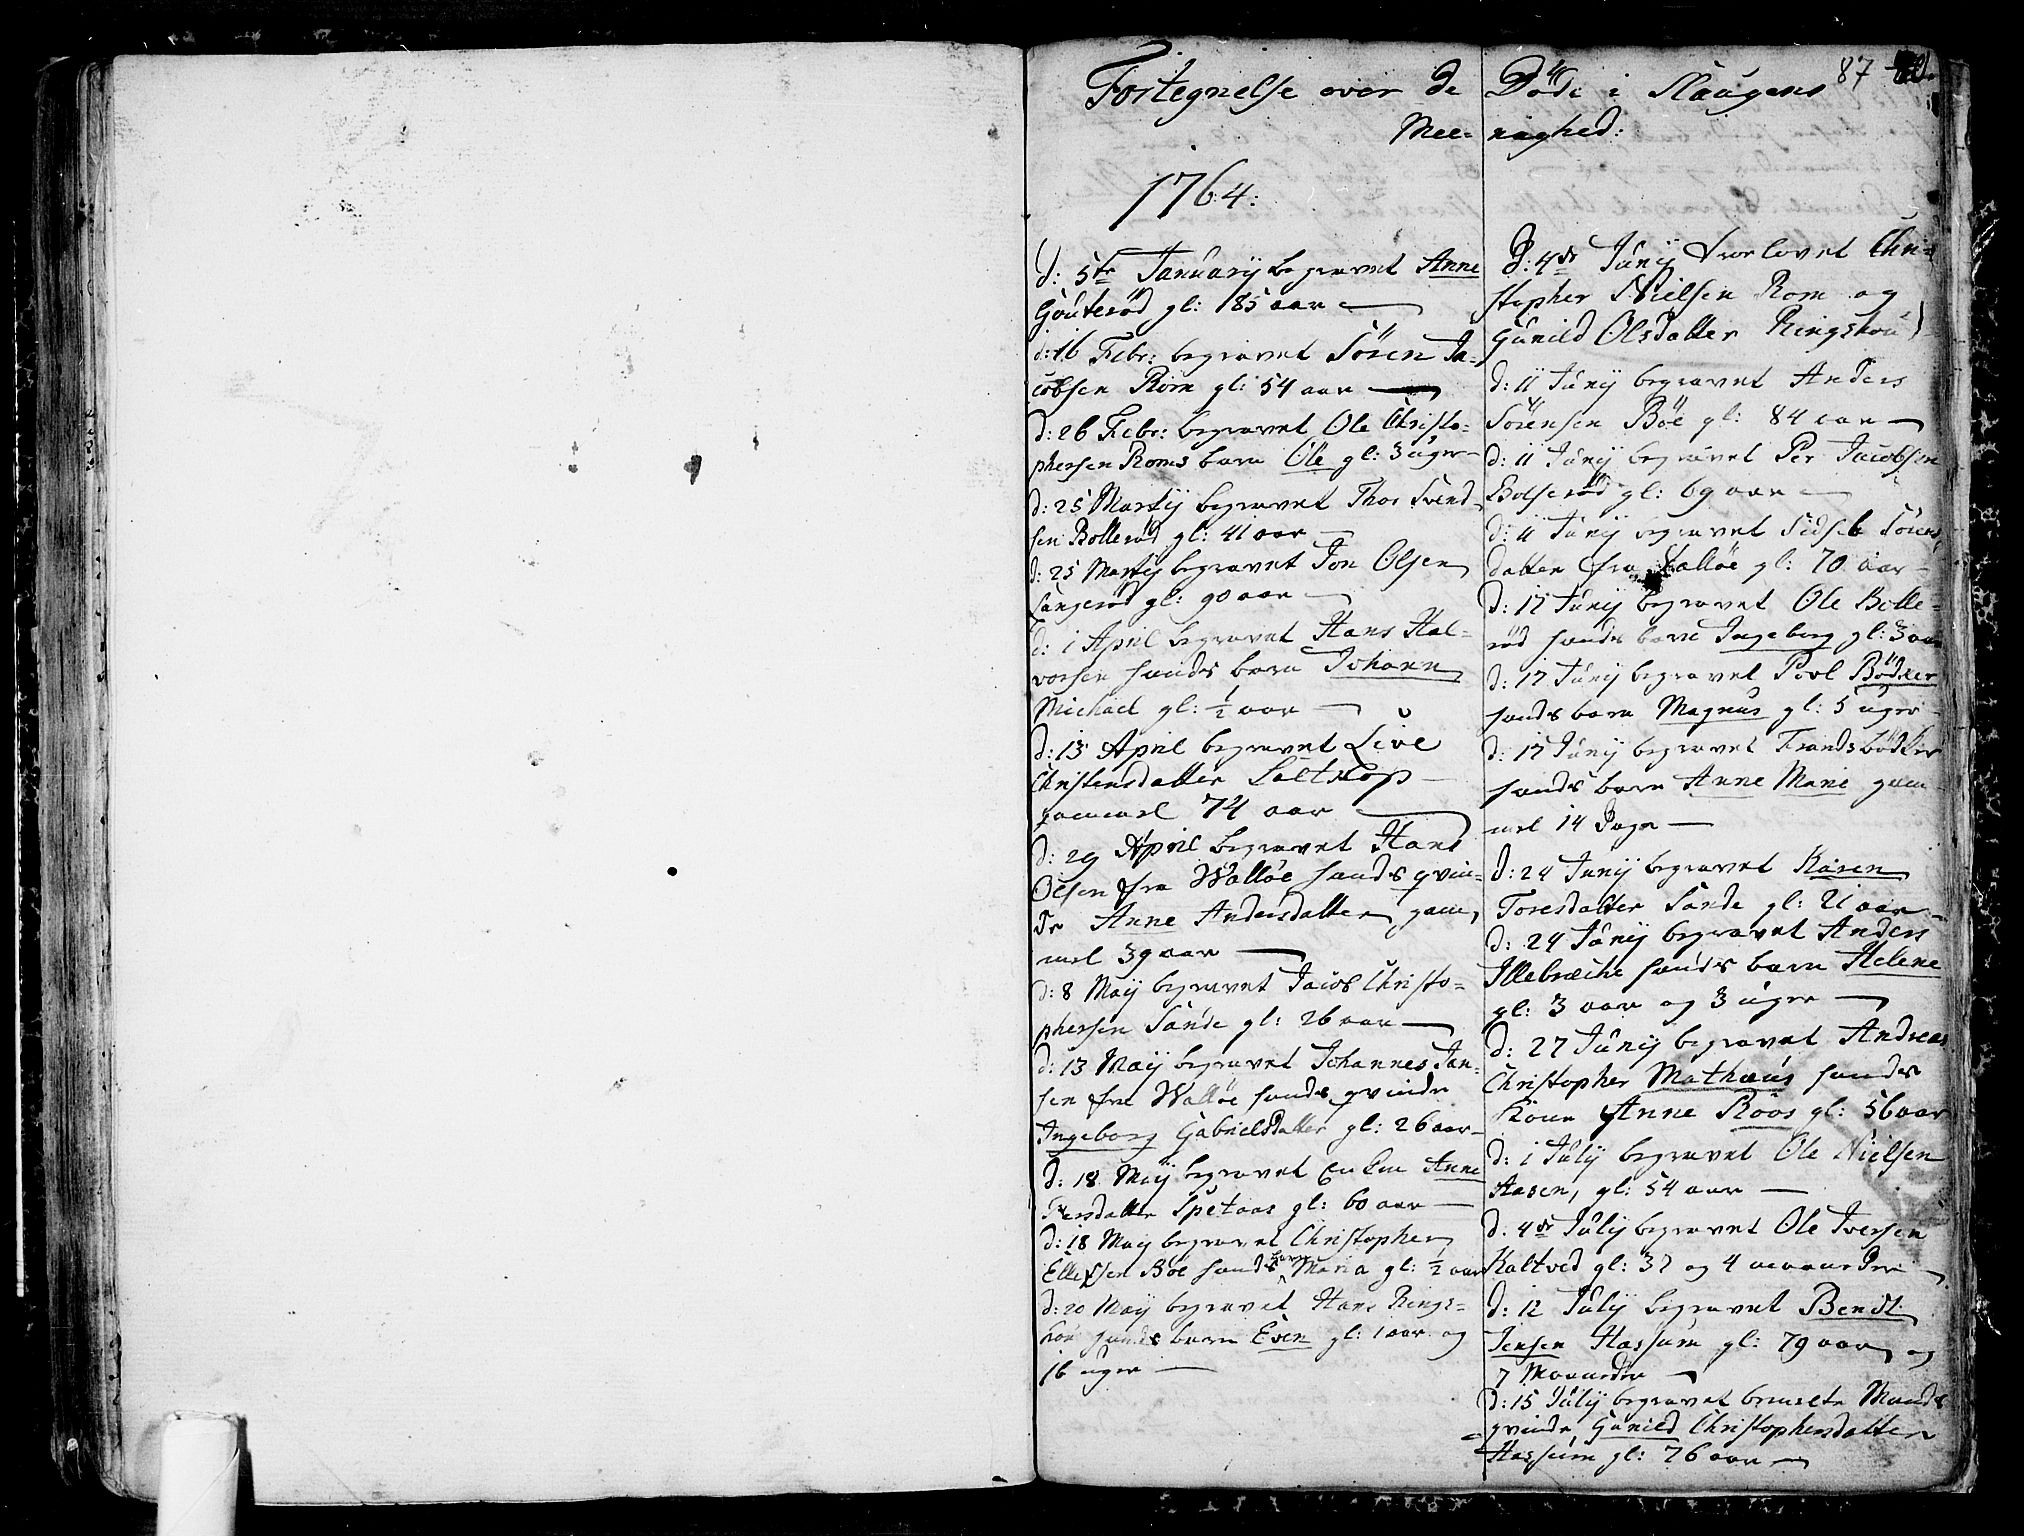 87
Fortegnelse over de Døde i Slaugens
Mee- nighed:
1764:
d: 5te Januarij begravet Anne
Gouterød gl: 85 aar
d: 16 Febr: begravet Sören Ja-
cobsen Rom gl: 54 aar
d: 26 Febr: begravet Ole Christo-
phersen Roms barn Ole gl: 3 uger
d: 25 Martij begravet Thor Svend-
sen Bollerød gl: 41 aar
d: 25 Martij begravet Jon Olsen
Sangerød gl: 90 aar
d: 1 April begravet Hans Hal-
vorsen hands barn Johann
Michael gl: ½ aar
d: 13 April begravet Live
Christensdatter Saltkop
gammel 74 aar
d: 29 April begravet Hans
Olsen fra Walløe hands qvin-
de Anne Andersdatter gam-
mel 39 aar
d: 8 Maij begravet Jacob Christo-
phersen Sande gl: 26 aar
d: 13 Maij begravet Johannes Jan-
sen fra Walløe hands qvinde
Ingeborg Gabrielsdatter gl: 26 aar
d: 18 Maij begravet Enken Anne
Iversdatter Spetaas gl: 60 aar
d: 18 Maij begravet Christopher
Ellefsen Bøe hands barn Maria gl: ½ aar
d: 20 Maij begravet Hans Rings-
hou hands barn Even gl: 1 aar og
16 uger
D: 4de Junij Trorlovet Chri-
stopher Nielsen Rom og
Gunild Olsdatter Ringshou)
d: 11 Junij begravet Anders
Sörensen Bøe gl: 84 aar
d: 11 Junij begravet Per Jacobsen
Bolserød gl: 69 aar
d: 11 Junij begravet Sidsel Sörens
datter fra Walløe gl: 70 aar
d: 17 Junij begravet Ole Bolle-
rød hands barn Ingeborg gl: 3 aar
d: 17 Junij begravet Povl Bødker
hands barn Magnus gl: 5 uger
d: 17 Junij begravet Frands bødker
hands barn Anne Marie gam-
mel 14 Dage
d: 24 Junij begravet Karen
Toresdatter Sande gl: 21 aar
d: 24 Junij begravet Anders
Illebræche hands barn Helene
gl: 3 aar og 3 uger
d: 27 Junij begravet Andreas
Christopher Mathæus hands
Kone Anne Roos gl: 56 aar
d: 1 Julij begravet Ole Nielsen
Aasen, gl: 54 aar
d: 4de Julij begravet Ole Iversen
Kaltved gl: 37 og 4 maaneder
d: 12 Julij begravet Bendt
Jensen Hassum gl: 79 aar og
7 Maaneder
d: 15 Julij begravet bemelte Mands
qvinde Gunild Christophersdatter
Hassum gl: 76 aar